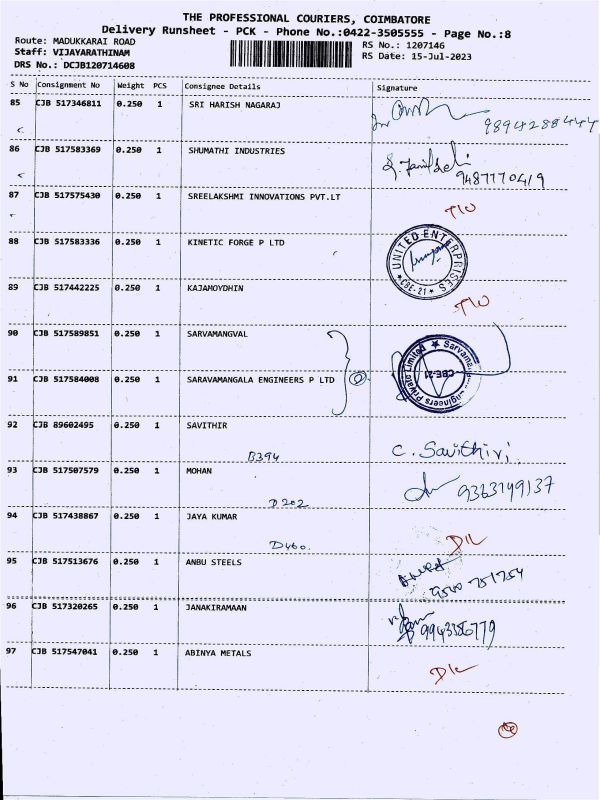 THE PROFESSIONAL COURIERS, COIMBATORE
Delivery Runsheet - PCK - Phone No.:0422-3505555 - Page No.:8
Route: MADUKKARAI ROAD
RS No.: 1207146
Staff: VIJAYARATHINAM
RS Date: 15-Jul-2023
DRS No.: DCJB120714608
S No Consignment No Weight PCS Consignee Details Signature
85 CJB 517346811 0.250 1 SRI HARISH NAGARAJ
9894288444
86 CJB 517583369 0.250 1 SHUMATHI INDUSTRIES
9487770419
87 CJB 517575430 0.250 1 SREELAKSHMI INNOVATIONS PVT.LT
88 CJB 517583336 0.250 1 KINETIC FORGE P LTD
UNITED ENTERPRISES
* CBE-21 *
89 CJB 517442225 0.250 1 KAJAMOYDHIN
90 CJB 517589851 0.250 1 SARVAMANGVAL
91 CJB 517584008 0.250 1 SARAVAMANGALA ENGINEERS P LTD
CBE-21
Engineers Private Limited
92 CJB 89602495 0.250 1 SAVITHIR
B394 C. Savithiri
93 CJB 517507579 0.250 1 MOHAN
9363149137
D202
94 CJB 517438867 0.250 1 JAYA KUMAR
D460. D/L
95 CJB 517513676 0.250 1 ANBU STEELS
9500 751754
96 CJB 517320265 0.250 1 JANAKIRAMAAN
9943356779
97 CJB 517547041 0.250 1 ABINYA METALS
D/L